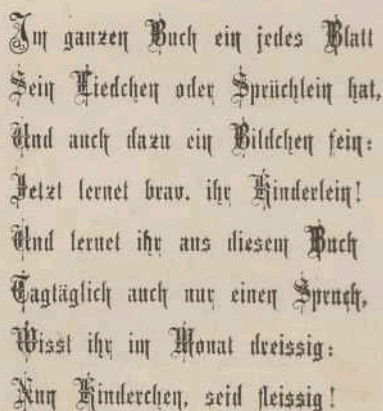 Im ganzen Buch ein jedes Blatt
Sein Liedchen oder Sprüchlein hat,
Und auch dazu ein Bildchen fein:
Jetzt lernet brav, ihr Kinderlein!
Und lernet ihr aus diesem Buch
Tagtäglich auch nur einen Spruch,
Wisst ihr im Monat dreissig:
Nun Kinderchen, seid fleissig!